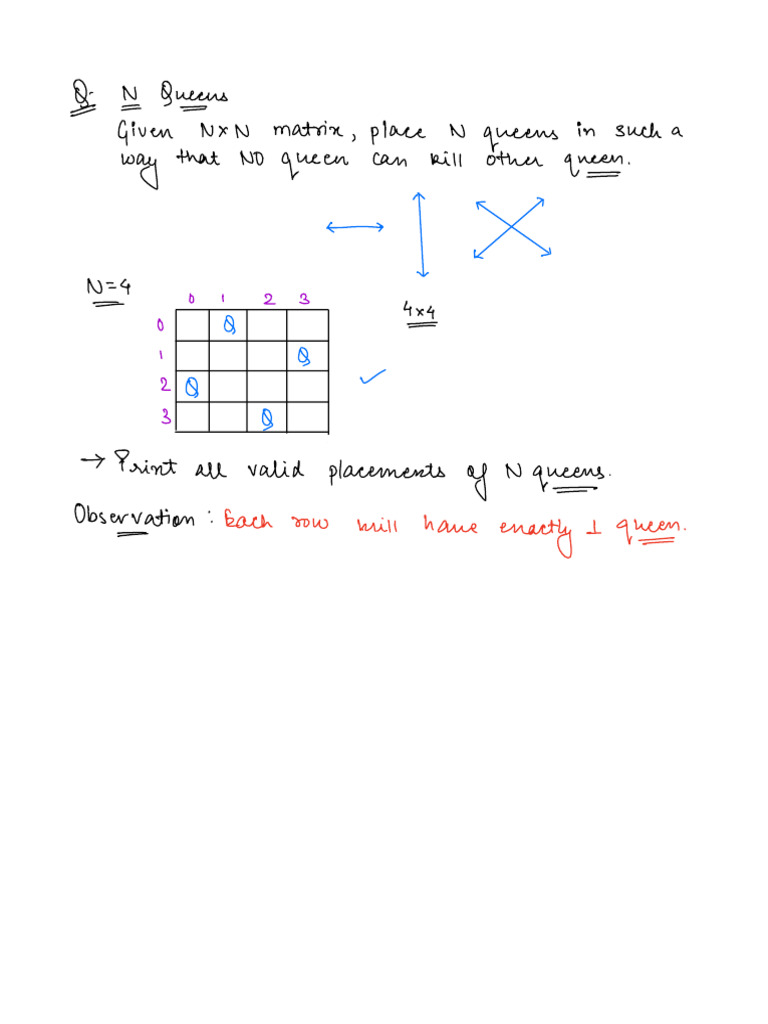 Q. N Queens
Given N×N matrix, place N queens in such a
way that NO queen can kill other queen.
N=4
0 1 2 3
4×4
0 Q
1 Q
2 Q
3 Q
→ Print all valid placements of N queens.
Observation : Each row will have exactly 1 queen.